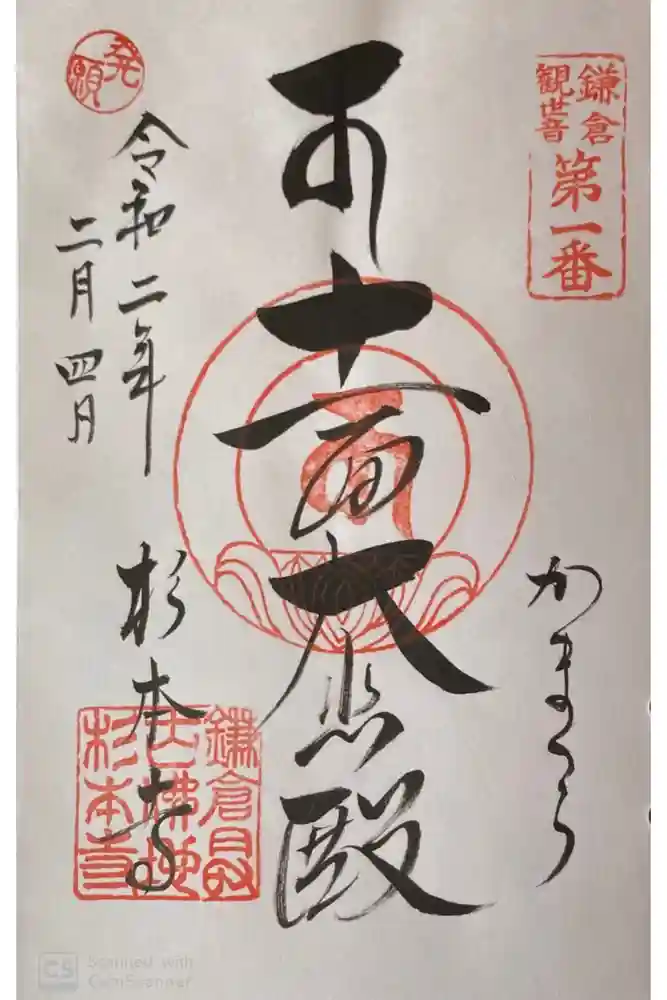 鎌倉
観世音
第一番
かまくら
十一面大悲殿
発願
令和二年
二月四日
杉本寺
鎌倉最
古佛地
杉本寺
CS Scanned with
CamScanner